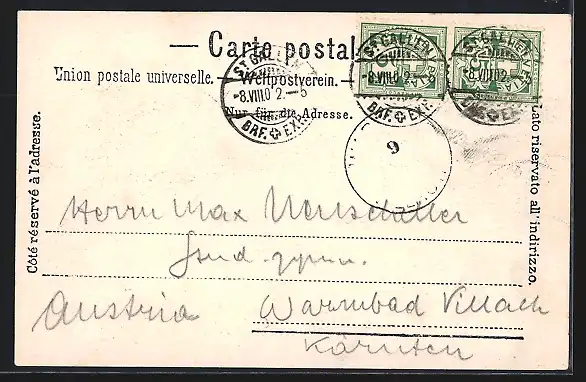 — Carte postale
Union postale universelle. — Weltpostverein. —
Nur für die Adresse.
Côté réservé à l'adresse.
Lato riservato all'indirizzo.
ST. GALLEN
-8.VIII.02.-5
BRF. EXP.
ST. GALLEN
-8.VIII.02
BRF. EXP.
ST. GALLEN
-8.VIII.02
BRF. EXP.
9
Herrn Max
Austria Warmbad Villach
Kärnten